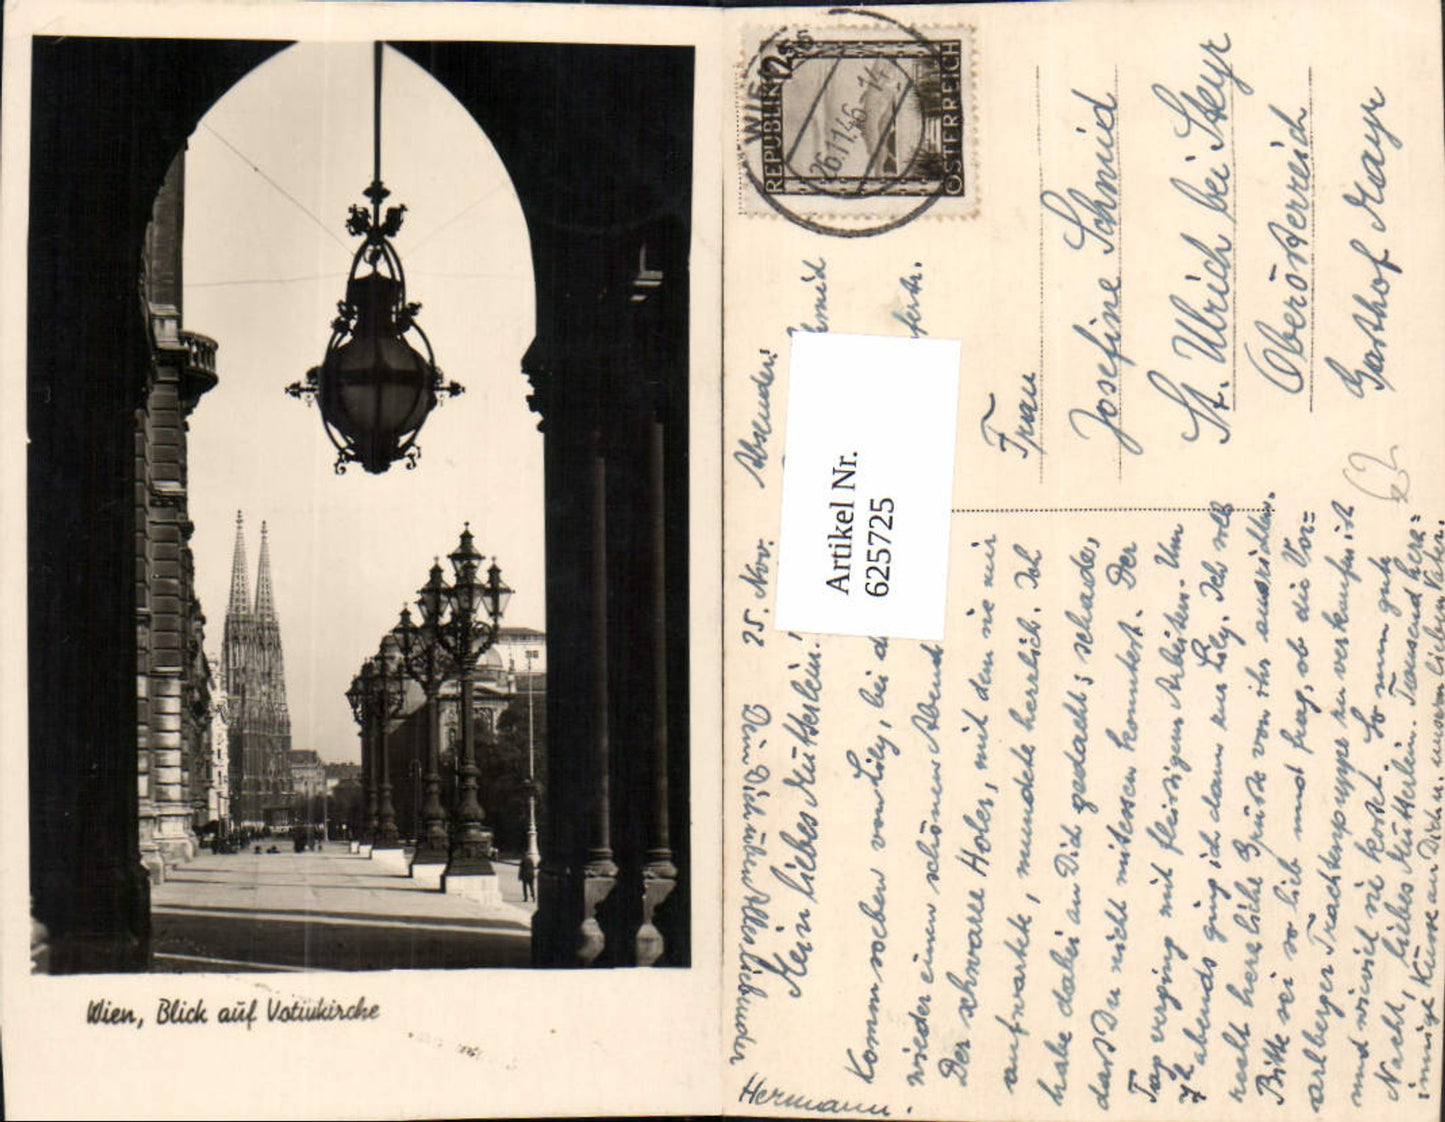 Wien, Blick auf Votivkirche
WIEN
25
REPUBLIK
ÖSTERREICH
26.11.46-14
Artikel Nr.
625725
Frau
Josefine Schmid
St. Ulrich bei Steyr
Oberösterreich
Gasthof Mayr
25. Nov.
Absender:
Mein liebes Mütterlein!
Komm soeben von Lily, bei d
wieder einen schönen Abend
Der schwarze Holer, mit dem sie mir
aufwartete, mundete herrlich. Ich
habe dabei an Dich gedacht; schade,
dass Du nicht mitessen konntest. Der
Tag verging mit fleissigem Arbeiten. Um
7h abends ging ich dann zu Lily. Ich soll
recht herzliche Grüße von ihr ausrichten.
Bitte sei so lieb und frag, ob die Vor=
arlberger Trachtenpuppe zu verkaufen ist
und wieviel sie kostet. So nun gute
Nacht, liebes Mütterlein. Tausend herz=
innige Küsse an Dich u. unsern lieben Vater.
Dein Dich über Alles liebender
Hermann.